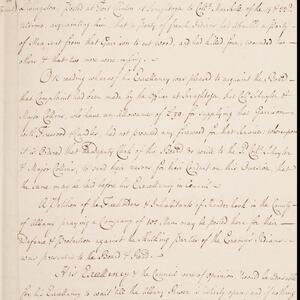 Livingston, Posted at Fort Clinton at Saraghtoga to Coll. Marshall of the 19 & 22d
Instant acquainting him that a Party of French Indians had Attackt a Party
of Men sent from that Garrison to cut wood, and had killed four, wounded
other & that two were were missing.
On reading whereof his Excellency was pleased to acquaint the Board
that Complaint had been made by the Officer at Saraghtoga, that Coll. Schuyler &
Major Collins, who have an allowance of £230 for supplying that Garrison
with Firewood & Candles, had not provided any firewood for that Service: whereupon
it is Ordered that the Deputy Clerk of this Board do write to the sd Coll. Schuyler
& Major Collins, to send down reasons for their Conduct on this Occasion, that
the same may be laid before his Excellency in Council
A Petition of the Freeholders & Inhabitants of Kinderhook in the County
of Albany praying a Company of 100 Men may be posted here for their
Defence & Protection against the Skulking Parties of the Enemys Indians
was presented to the Board & Read.
His Excellency & the Council are of opinion
for his Excellency to wait till the Albany River is intirely open, and